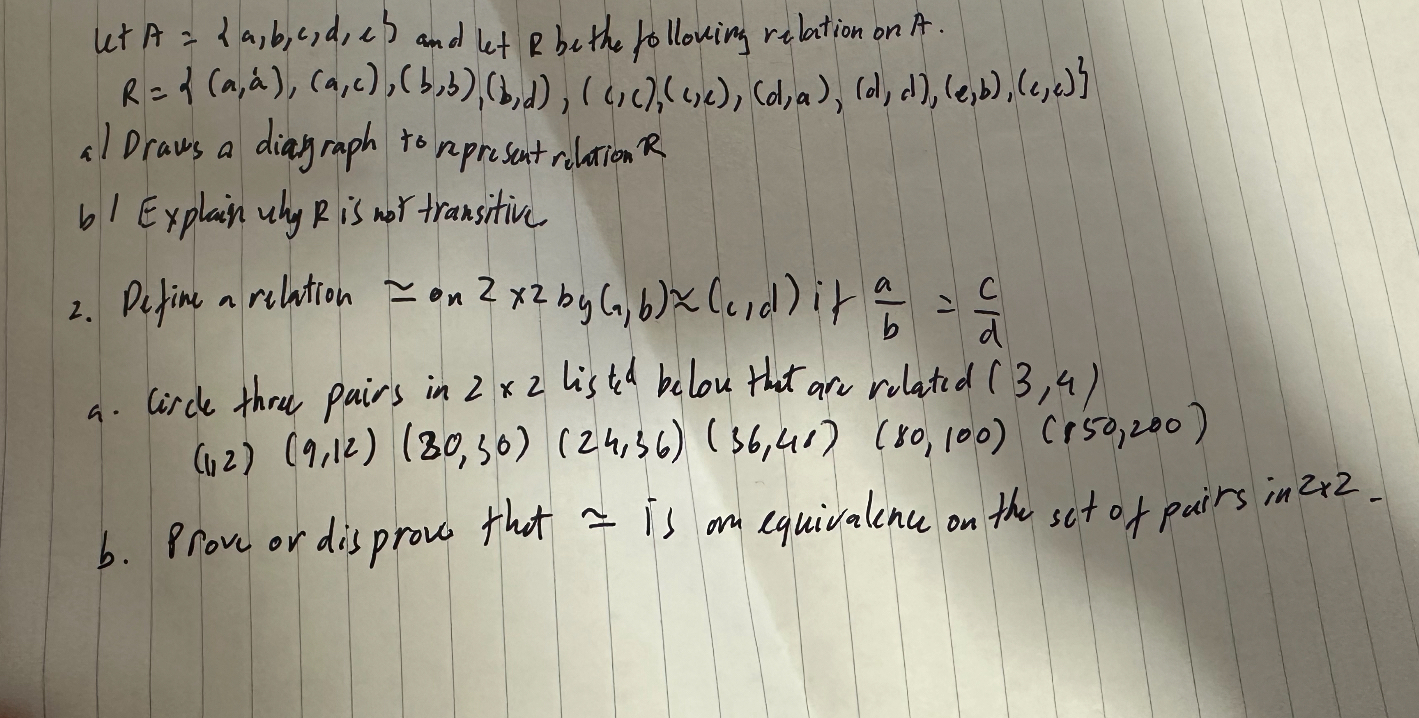 let A = {a,b,c,d,e} and let R be the following relation on A.
R = { (a,a), (a,c), (b,b), (b,d), (c,c), (c,e), (d,a), (d,d), (e,b), (e,e)}
a) Draws a diagraph to represent relation R
b) Explain why R is not transitive
2. Define a relation ≃ on Z x Z by (a,b) ≈ (c,d) if a/b = c/d
a. Circle three pairs in Z x Z listed below that are related (3,4)
(1,2) (9,12) (30,50) (24,36) (36,48) (80,100) (150,200)
b. Prove or disprove that ≃ is an equivalence on the set of pairs in Z x Z.